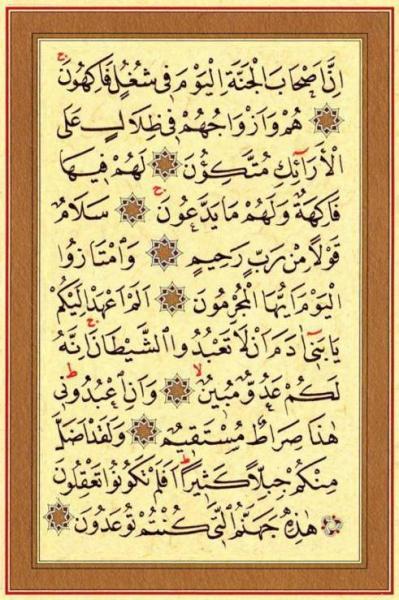 اِنَّ اَصْحَابَ الْجَنَّةِ الْيَوْمَ فٖى شُغُلٍ فَاكِهُونَ
هُمْ وَاَزْوَاجُهُمْ فٖى ظِلَالٍ عَلَى
الْاَرَٓائِكِ مُتَّكِؤُنَ لَهُمْ فٖيهَا
فَاكِهَةٌ وَلَهُمْ مَا يَدَّعُونَ سَلَامٌ
قَوْلًا مِنْ رَبٍّ رَحٖيمٍ وَامْتَازُوا
الْيَوْمَ اَيُّهَا الْمُجْرِمُونَ اَلَمْ اَعْهَدْ اِلَيْكُمْ
يَا بَنٖٓى اٰدَمَ اَنْ لَا تَعْبُدُوا الشَّيْطَانَ اِنَّهُ
لَكُمْ عَدُوٌّ مُبٖينٌ وَاَنِ اعْبُدُونٖى
هٰذَا صِرَاطٌ مُسْتَقٖيمٌ وَلَقَدْ اَضَلَّ
مِنْكُمْ جِبِلًّا كَثٖيرًا اَفَلَمْ تَكُونُوا تَعْقِلُونَ
هٰذِهٖ جَهَنَّمُ الَّتٖى كُنْتُمْ تُوعَدُونَ